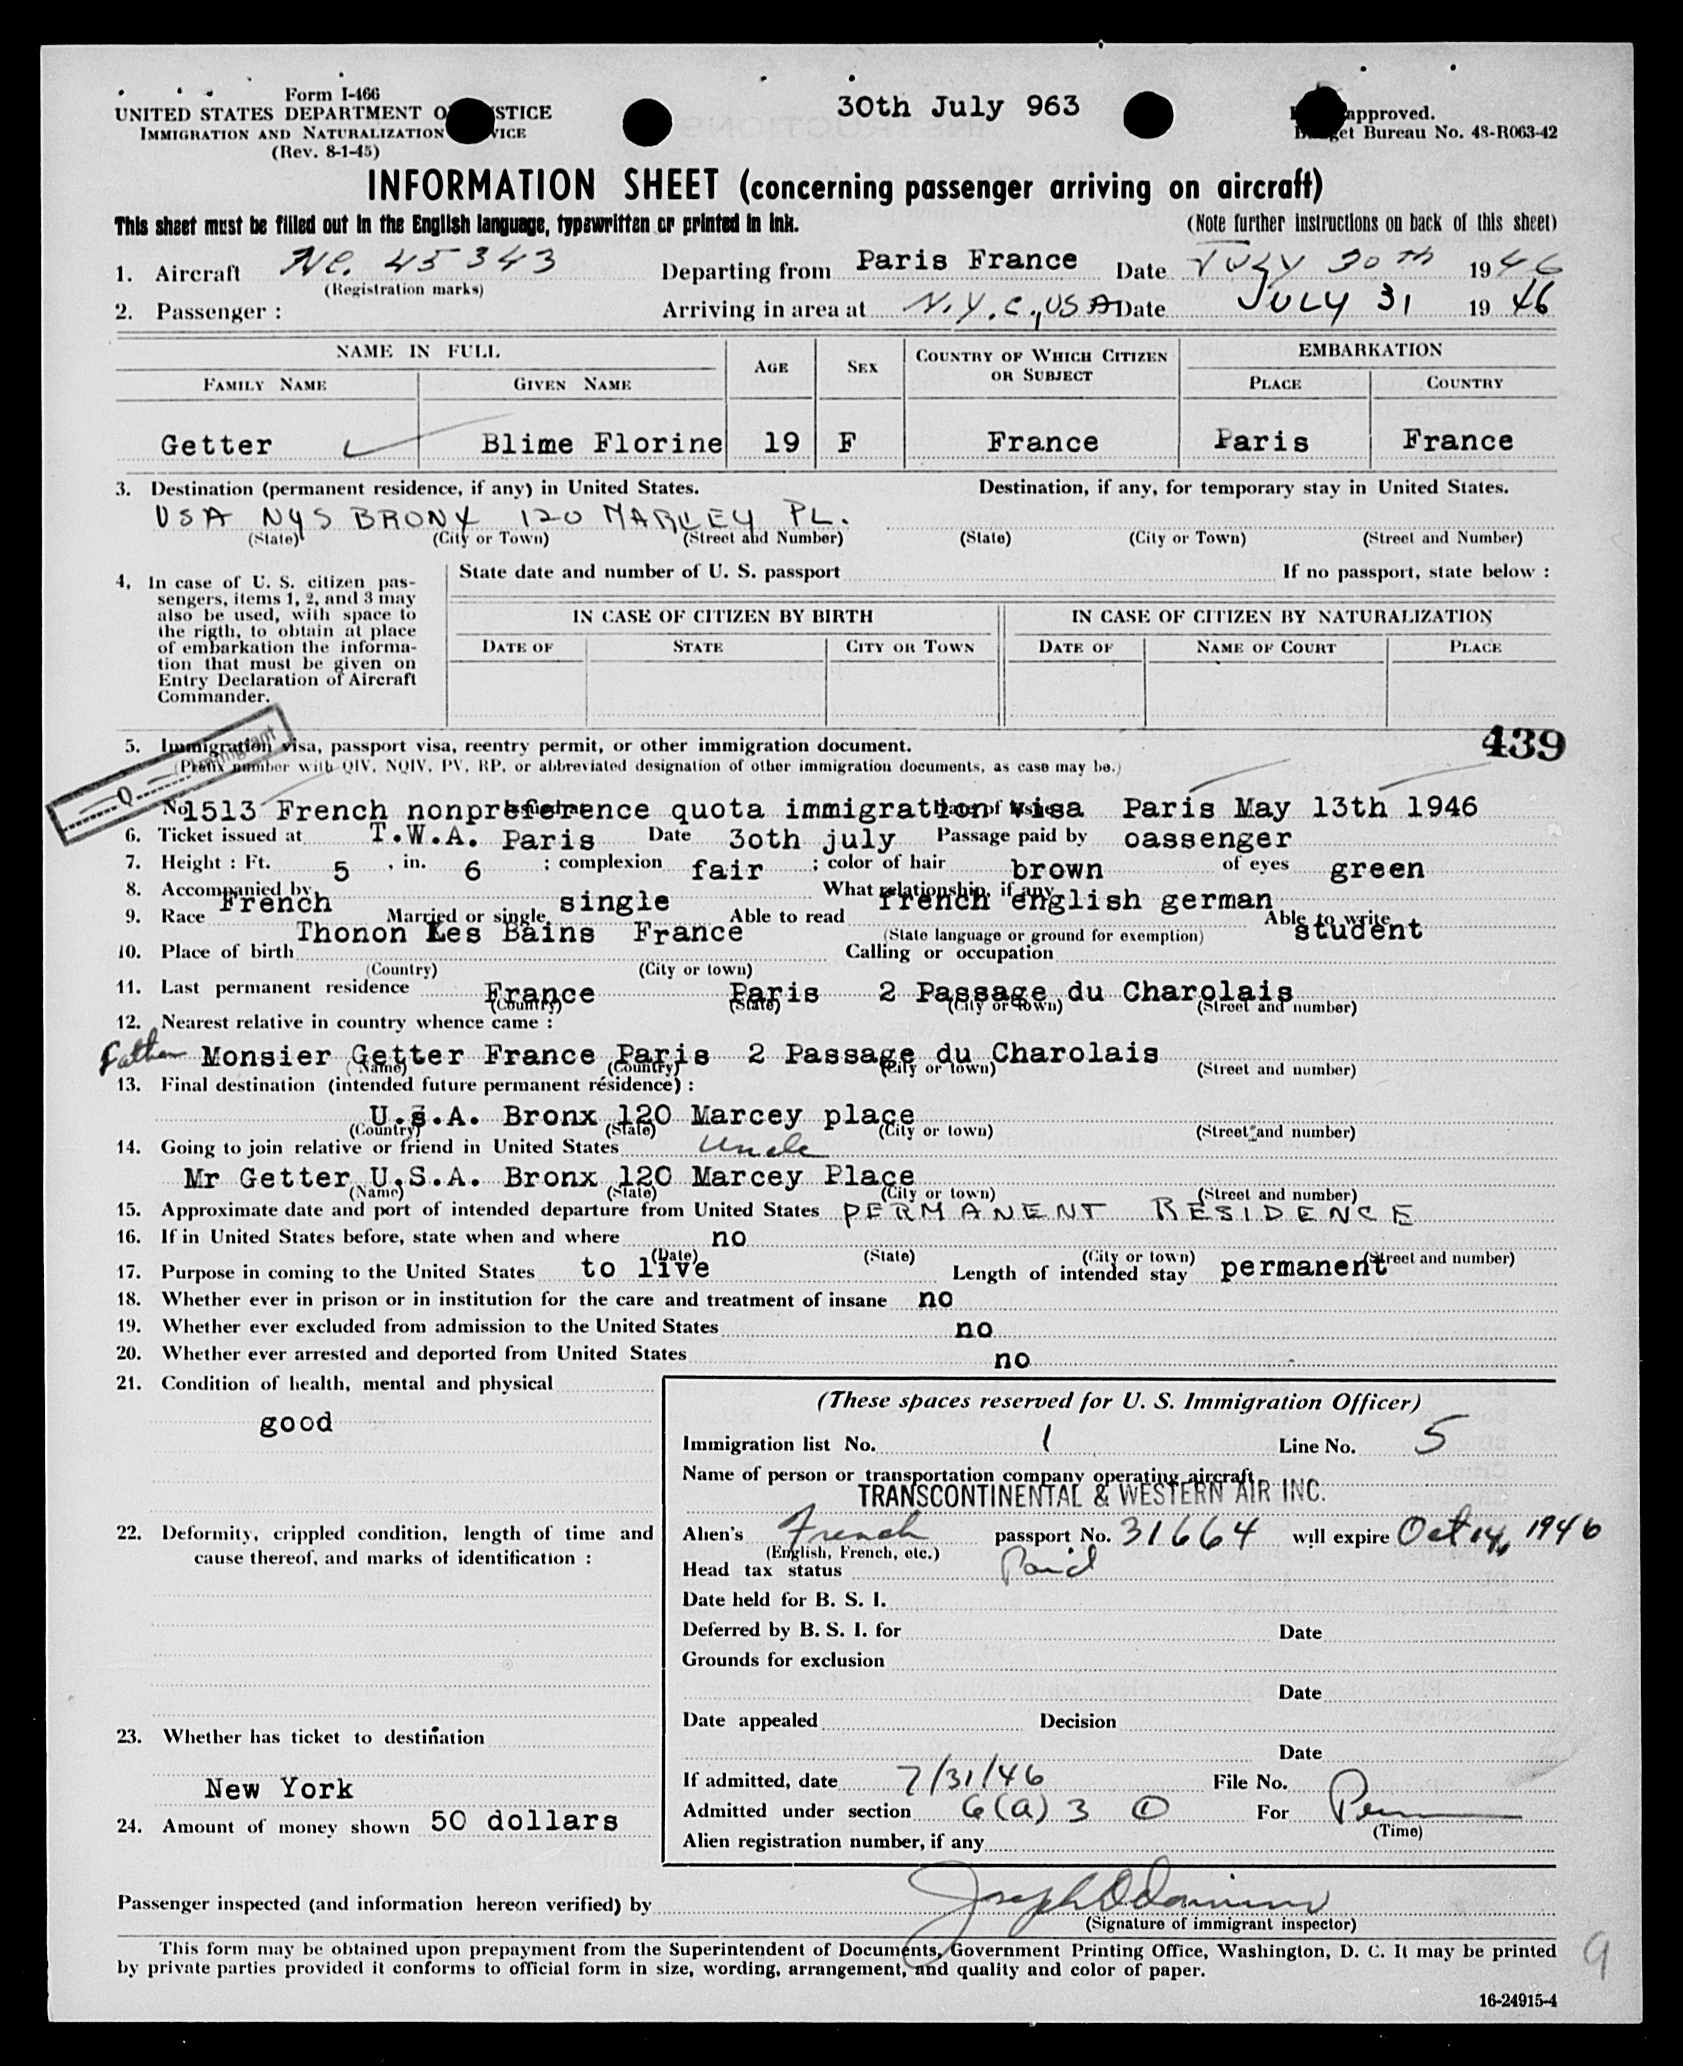 Form I-466
UNITED STATES DEPARTMENT O STICE
IMMIGRATION AND NATURALIZATION VICE
(Rev. 8-1-45)
30th July 963
approved.
et Bureau No. 43-R063-42
INFORMATION SHEET (concerning passenger arriving on aircraft)
This sheet must be filled out in the English language, typewritten or printed in ink. (Note further instructions on back of this sheet)
1. Aircraft NC. 45343 Departing from Paris France Date JULY 30th 1946
(Registration marks)
2. Passenger : Arriving in area at N.Y.C., USA Date JULY 31 1946
NAME IN FULL AGE SEX COUNTRY OF WHICH CITIZEN OR SUBJECT EMBARKATION
FAMILY NAME GIVEN NAME PLACE COUNTRY
Getter Blime Florine 19 F France Paris France
3. Destination (permanent residence, if any) in United States. Destination, if any, for temporary stay in United States.
USA NYS BRONX 120 MARCEY PL.
(State) (City or Town) (Street and Number) (State) (City or Town) (Street and Number)
4. In case of U. S. citizen pas-
sengers, items 1, 2, and 3 may
also be used, with space to
the rigth, to obtain at place
of embarkation the informa-
tion that must be given on
Entry Declaration of Aircraft
Commander.
State date and number of U. S. passport If no passport, state below :
IN CASE OF CITIZEN BY BIRTH IN CASE OF CITIZEN BY NATURALIZATION
DATE OF STATE CITY OR TOWN DATE OF NAME OF COURT PLACE
439
Q Immigrant
5. Immigration visa, passport visa, reentry permit, or other immigration document.
(Prefix number with QIV, NQIV, PV, RP, or abbreviated designation of other immigration documents, as case may be.)
No 1513 French nonpreference quota immigration visa Paris May 13th 1946
6. Ticket issued at T.W.A. Paris Date 30th july Passage paid by oassenger
7. Height : Ft. 5 , in. 6 ; complexion fair ; color of hair brown of eyes green
8. Accompanied by What relationship, if any
French single french english german
9. Race Married or single Able to read Able to write
Thonon Les Bains France (State language or ground for exemption) student
10. Place of birth Calling or occupation
(Country) (City or town)
11. Last permanent residence France Paris 2 Passage du Charolais
(Country) (State) (City or town) (Street and number)
12. Nearest relative in country whence came :
Father Monsier Getter France Paris 2 Passage du Charolais
(Name) (Country) (City or town) (Street and number)
13. Final destination (intended future permanent résidence) :
U.s.A. Bronx 120 Marcey place
(Country) (State) (City or town) (Street and number)
14. Going to join relative or friend in United States Uncle
Mr Getter U.S.A. Bronx 120 Marcey Place
(Name) (State) (City or town) (Street and number)
15. Approximate date and port of intended departure from United States PERMANENT RESIDENCE
16. If in United States before, state when and where no
(Date) (State) (City or town) (Street and number)
17. Purpose in coming to the United States to live Length of intended stay permanent
18. Whether ever in prison or in institution for the care and treatment of insane no
19. Whether ever excluded from admission to the United States no
20. Whether ever arrested and deported from United States no
21. Condition of health, mental and physical
good
22. Deformity, crippled condition, length of time and
cause thereof, and marks of identification :
23. Whether has ticket to destination
New York
24. Amount of money shown 50 dollars
(These spaces reserved for U. S. Immigration Officer)
Immigration list No. 1 Line No. 5
Name of person or transportation company operating aircraft
TRANSCONTINENTAL & WESTERN AIR INC.
Alien's French passport No. 31664 will expire Oct 14, 1946
(English, French, etc.)
Head tax status Paid
Date held for B. S. I.
Deferred by B. S. I. for Date
Grounds for exclusion
Date
Date appealed Decision
Date
If admitted, date 7/31/46 File No.
Admitted under section 6(a) 3 ① For Perm
(Time)
Alien registration number, if any
Passenger inspected (and information hereon verified) by Joseph
(Signature of immigrant inspector)
This form may be obtained upon prepayment from the Superintendent of Documents, Government Printing Office, Washington, D. C. It may be printed
by private parties provided it conforms to official form in size, wording, arrangement, and quality and color of paper.
9
16-24915-4